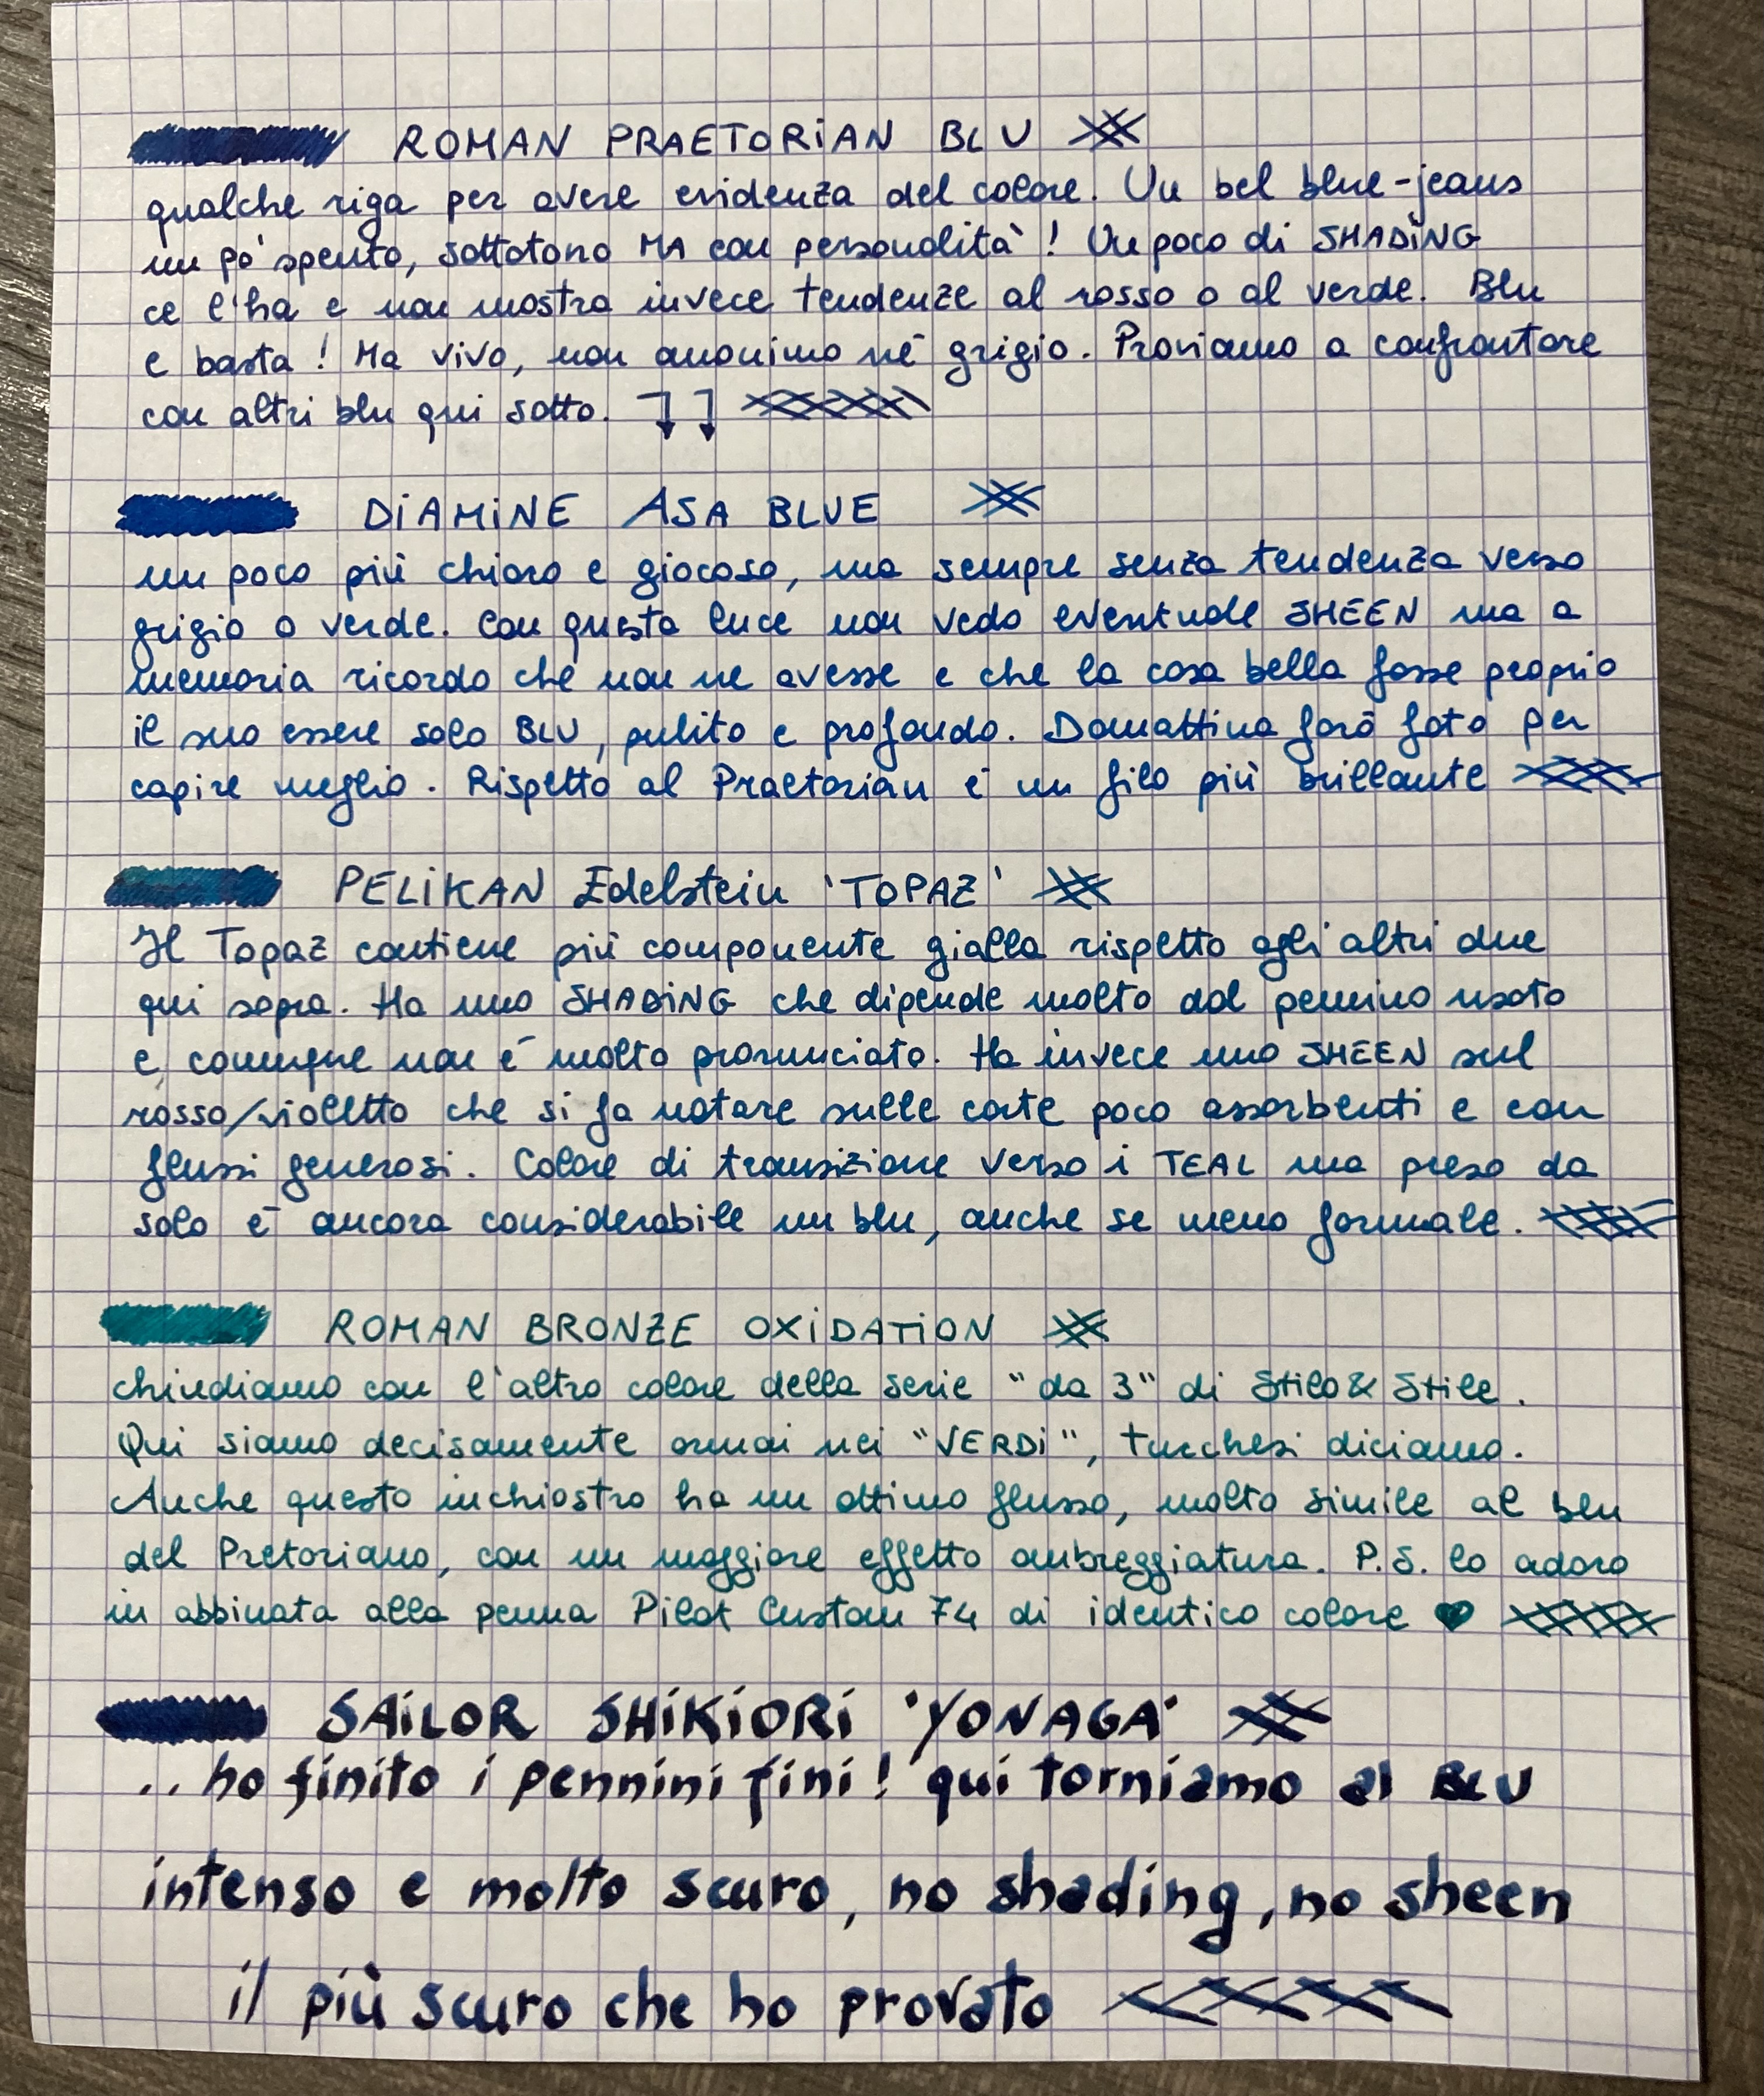 ROMAN PRAETORIAN BLU
qualche riga per avere evidenza del colore. Un bel blue-jeans
un po' spento, sottotono MA con personalità! Un poco di SHADING
ce l'ha e non mostra invece tendenze al rosso o al verde. Blu
e basta! Ma vivo, non anonimo né grigio. Proviamo a confrontare
con altri blu qui sotto.
DIAMINE ASA BLUE
un poco più chiaro e giocoso, ma sempre senza tendenza verso
grigio o verde. Con questa luce non vedo eventuale SHEEN ma a
memoria ricordo che non ne avesse e che la cosa bella fosse proprio
il suo essere solo BLU, pulito e profondo. Domattina farò foto per
capire meglio. Rispetto al Praetorian è un filo più brillante
PELIKAN Edelstein 'TOPAZ'
Il Topaz contiene più componente gialla rispetto agli altri due
qui sopra. Ha uno SHADING che dipende molto dal pennino usato
e comunque non è molto pronunciato. Ha invece uno SHEEN sul
rosso/violetto che si fa notare sulle carte poco assorbenti e con
flussi generosi. Colore di transizione verso i TEAL ma preso da
solo è ancora considerabile un blu, anche se meno formale.
ROMAN BRONZE OXIDATION
chiudiamo con l'altro colore della serie "da 3" di Stilo & Stile.
Qui siamo decisamente ormai nei "VERDI", turchesi diciamo.
Anche questo inchiostro ha un ottimo flusso, molto simile al blu
del Pretoriano, con un maggiore effetto ombreggiatura. P.S. lo adoro
in abbinata alla penna Pilot Custom 74 di identico colore ♥
SAILOR SHIKIORI 'YONAGA'
.. ho finito i pennini fini! qui torniamo al BLU
intenso e molto scuro, no shading, no sheen
il più scuro che ho provato